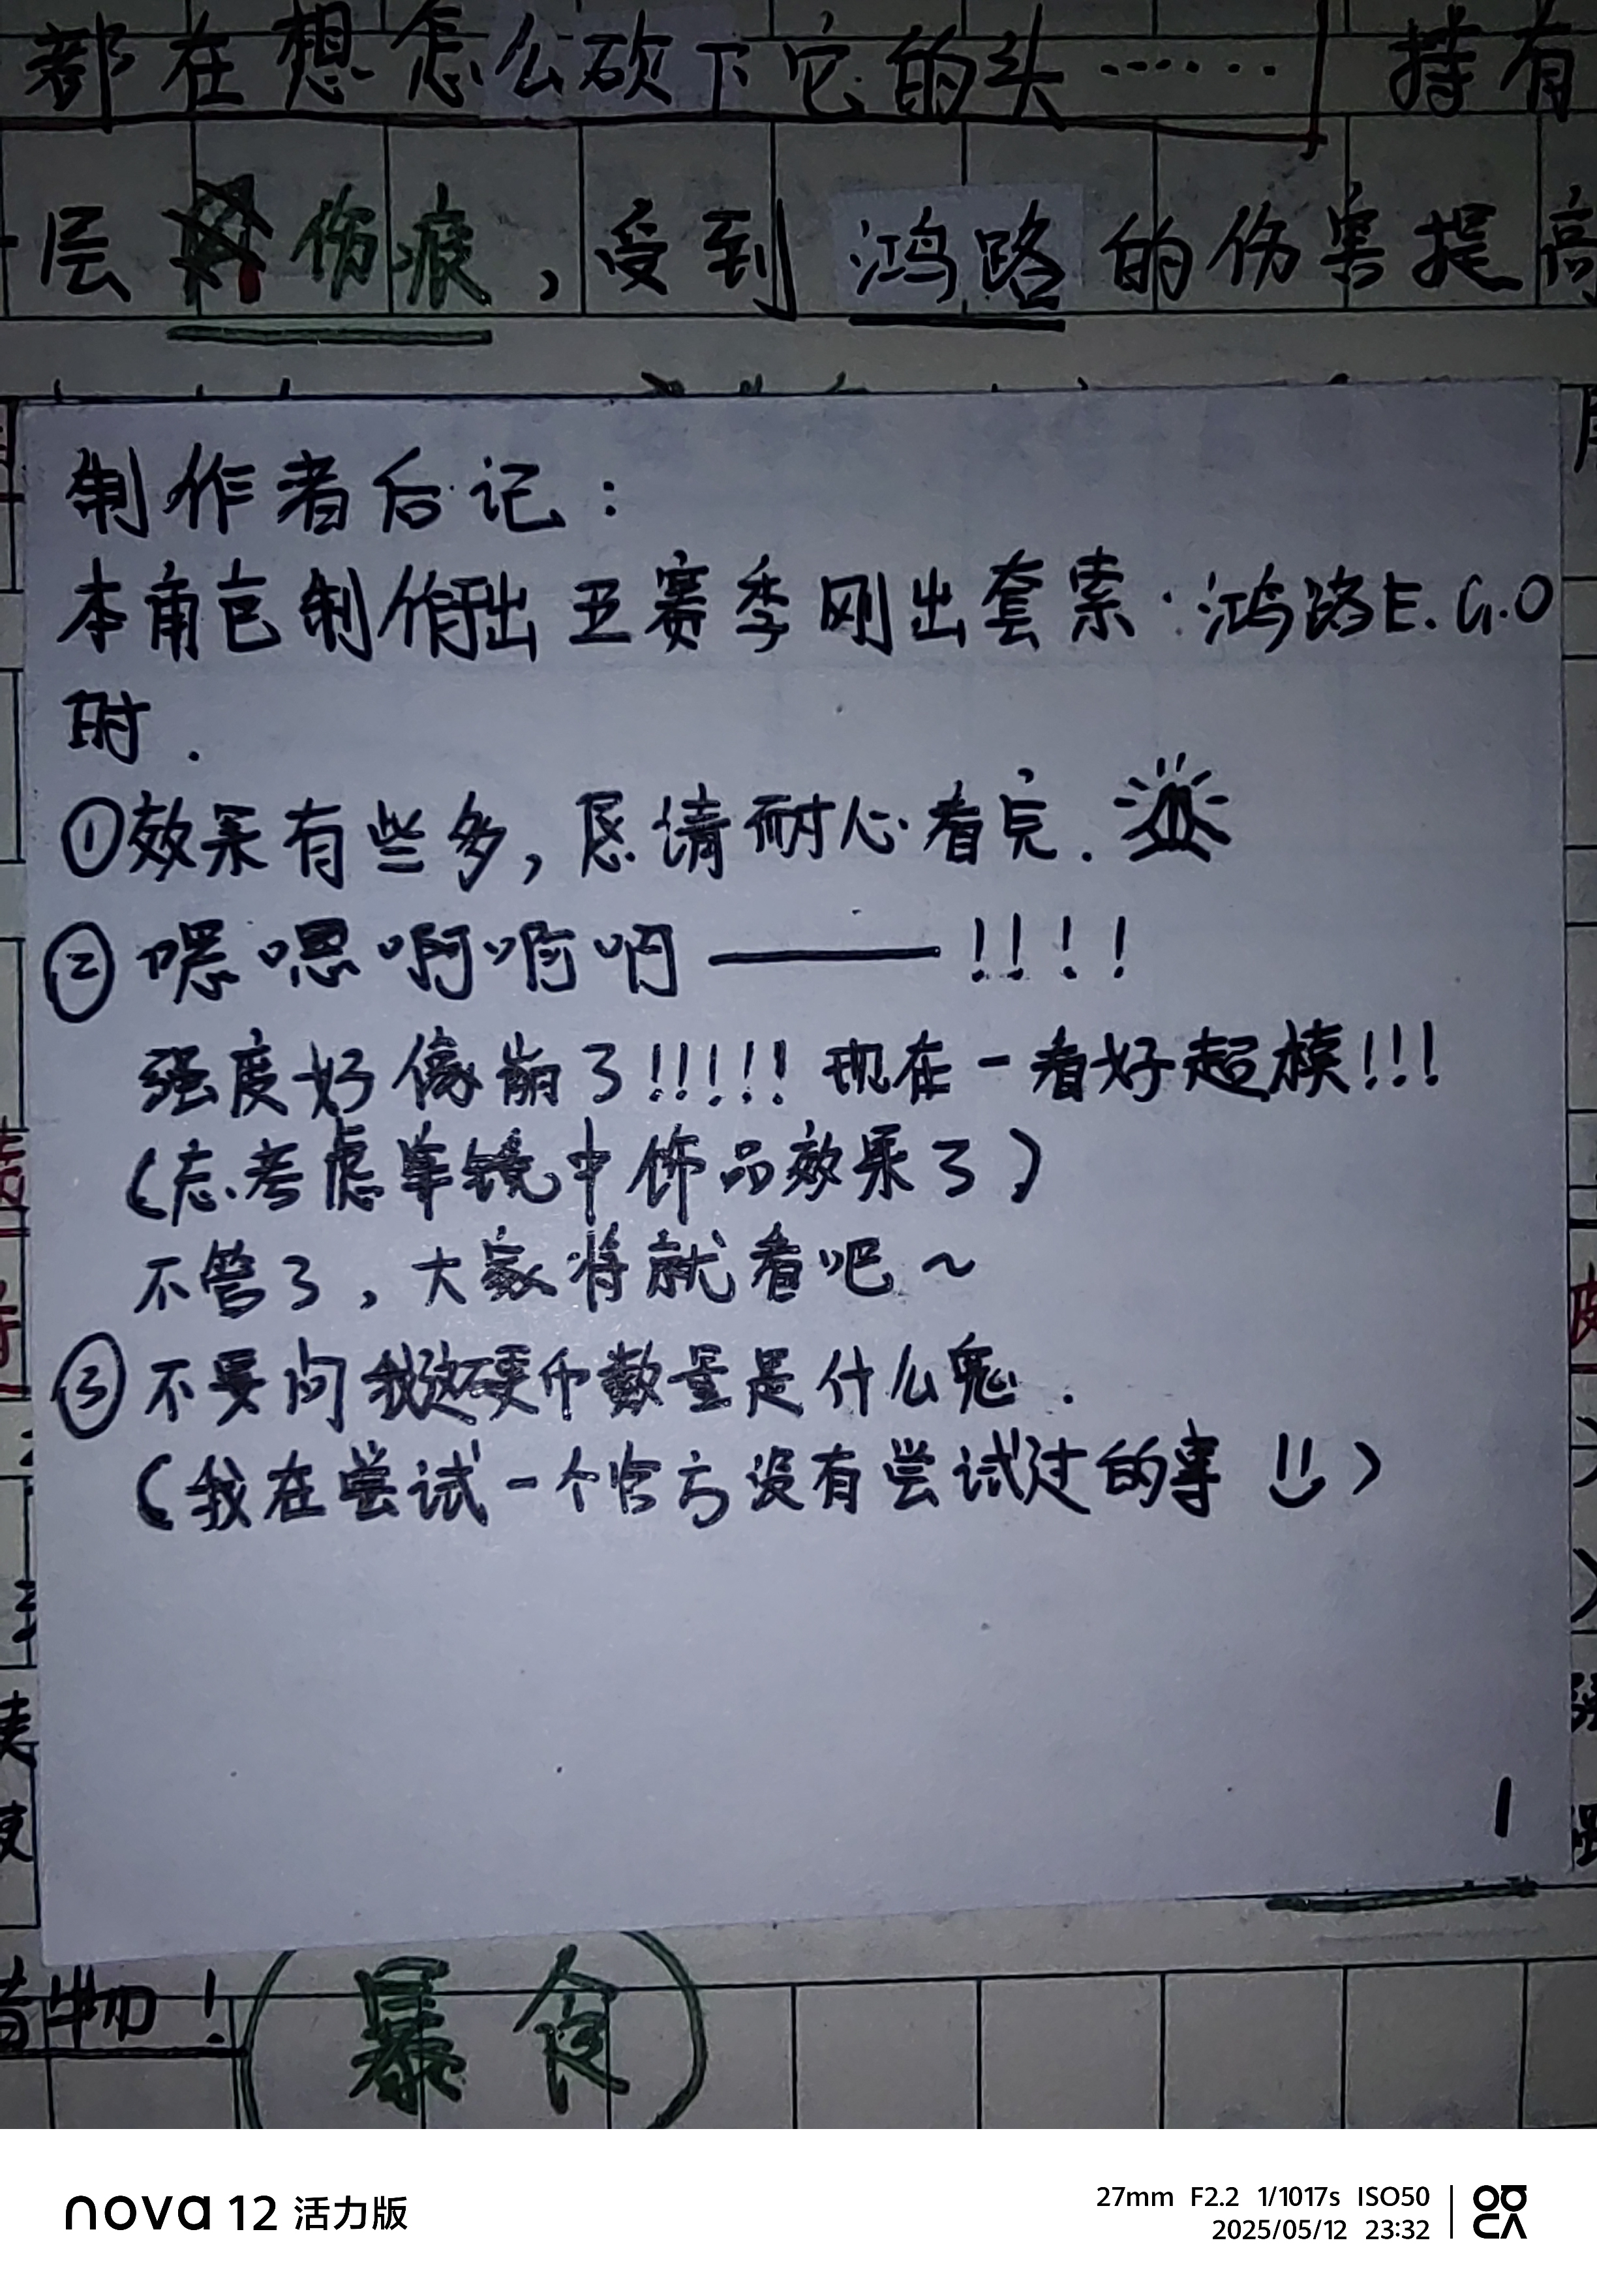 都在想怎么砍下它的头…… 持有
层 伤痕，受到鸿路的伤害提高
制作者后记：
本角色制作出五赛季刚出套索·鸿路E.G.O
时.
①效果有些多，恳请耐心看完.
②嗯嗯啊啊啊——!!!!
强度好像崩了!!!!! 现在一看好超模!!!
(忘考虑单镜中饰品效果了)
不管了，大家将就看吧~
③不要问我这硬币数量是什么鬼.
(我在尝试一个官方没有尝试过的事)
1
物！ 暴食
nova 12 活力版
27mm F2.2 1/1017s ISO50
2025/05/12 23:32